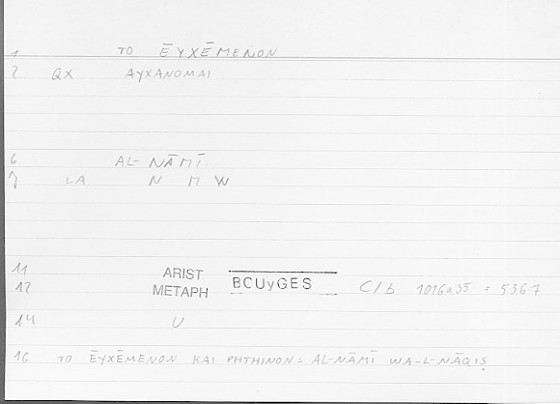 1 TO ĒYXĒMENON
2 QX AYXANOMAI
6 AL-NĀMĪ
7 LA N M W
11 ARIST
12 METAPH BCUyGES C/b 1016a35 = 536.7
14 U
16 TO ĒYXĒMENON KAI PHTHINON = AL-NĀMĪ WA-L-NĀQIṢ